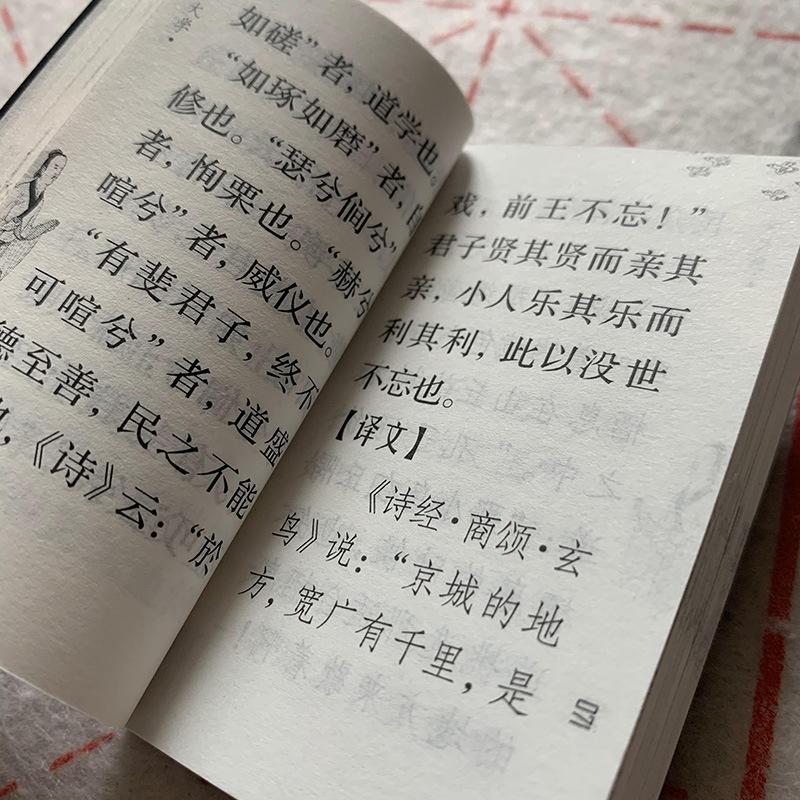 大学·
如磋”者，道学也。
“如琢如磨”者，
修也。“瑟兮僩兮”
者，恂栗也。“赫兮
喧兮”者，威仪也。
“有斐君子，终不
可喧兮”者，道盛
德至善，民之不能
也，《诗》云：“於
戏，前王不忘！”
君子贤其贤而亲其
亲，小人乐其乐而
利其利，此以没世
不忘也。
【译文】
《诗经·商颂·玄
鸟》说：“京城的地
方，宽广有千里，是